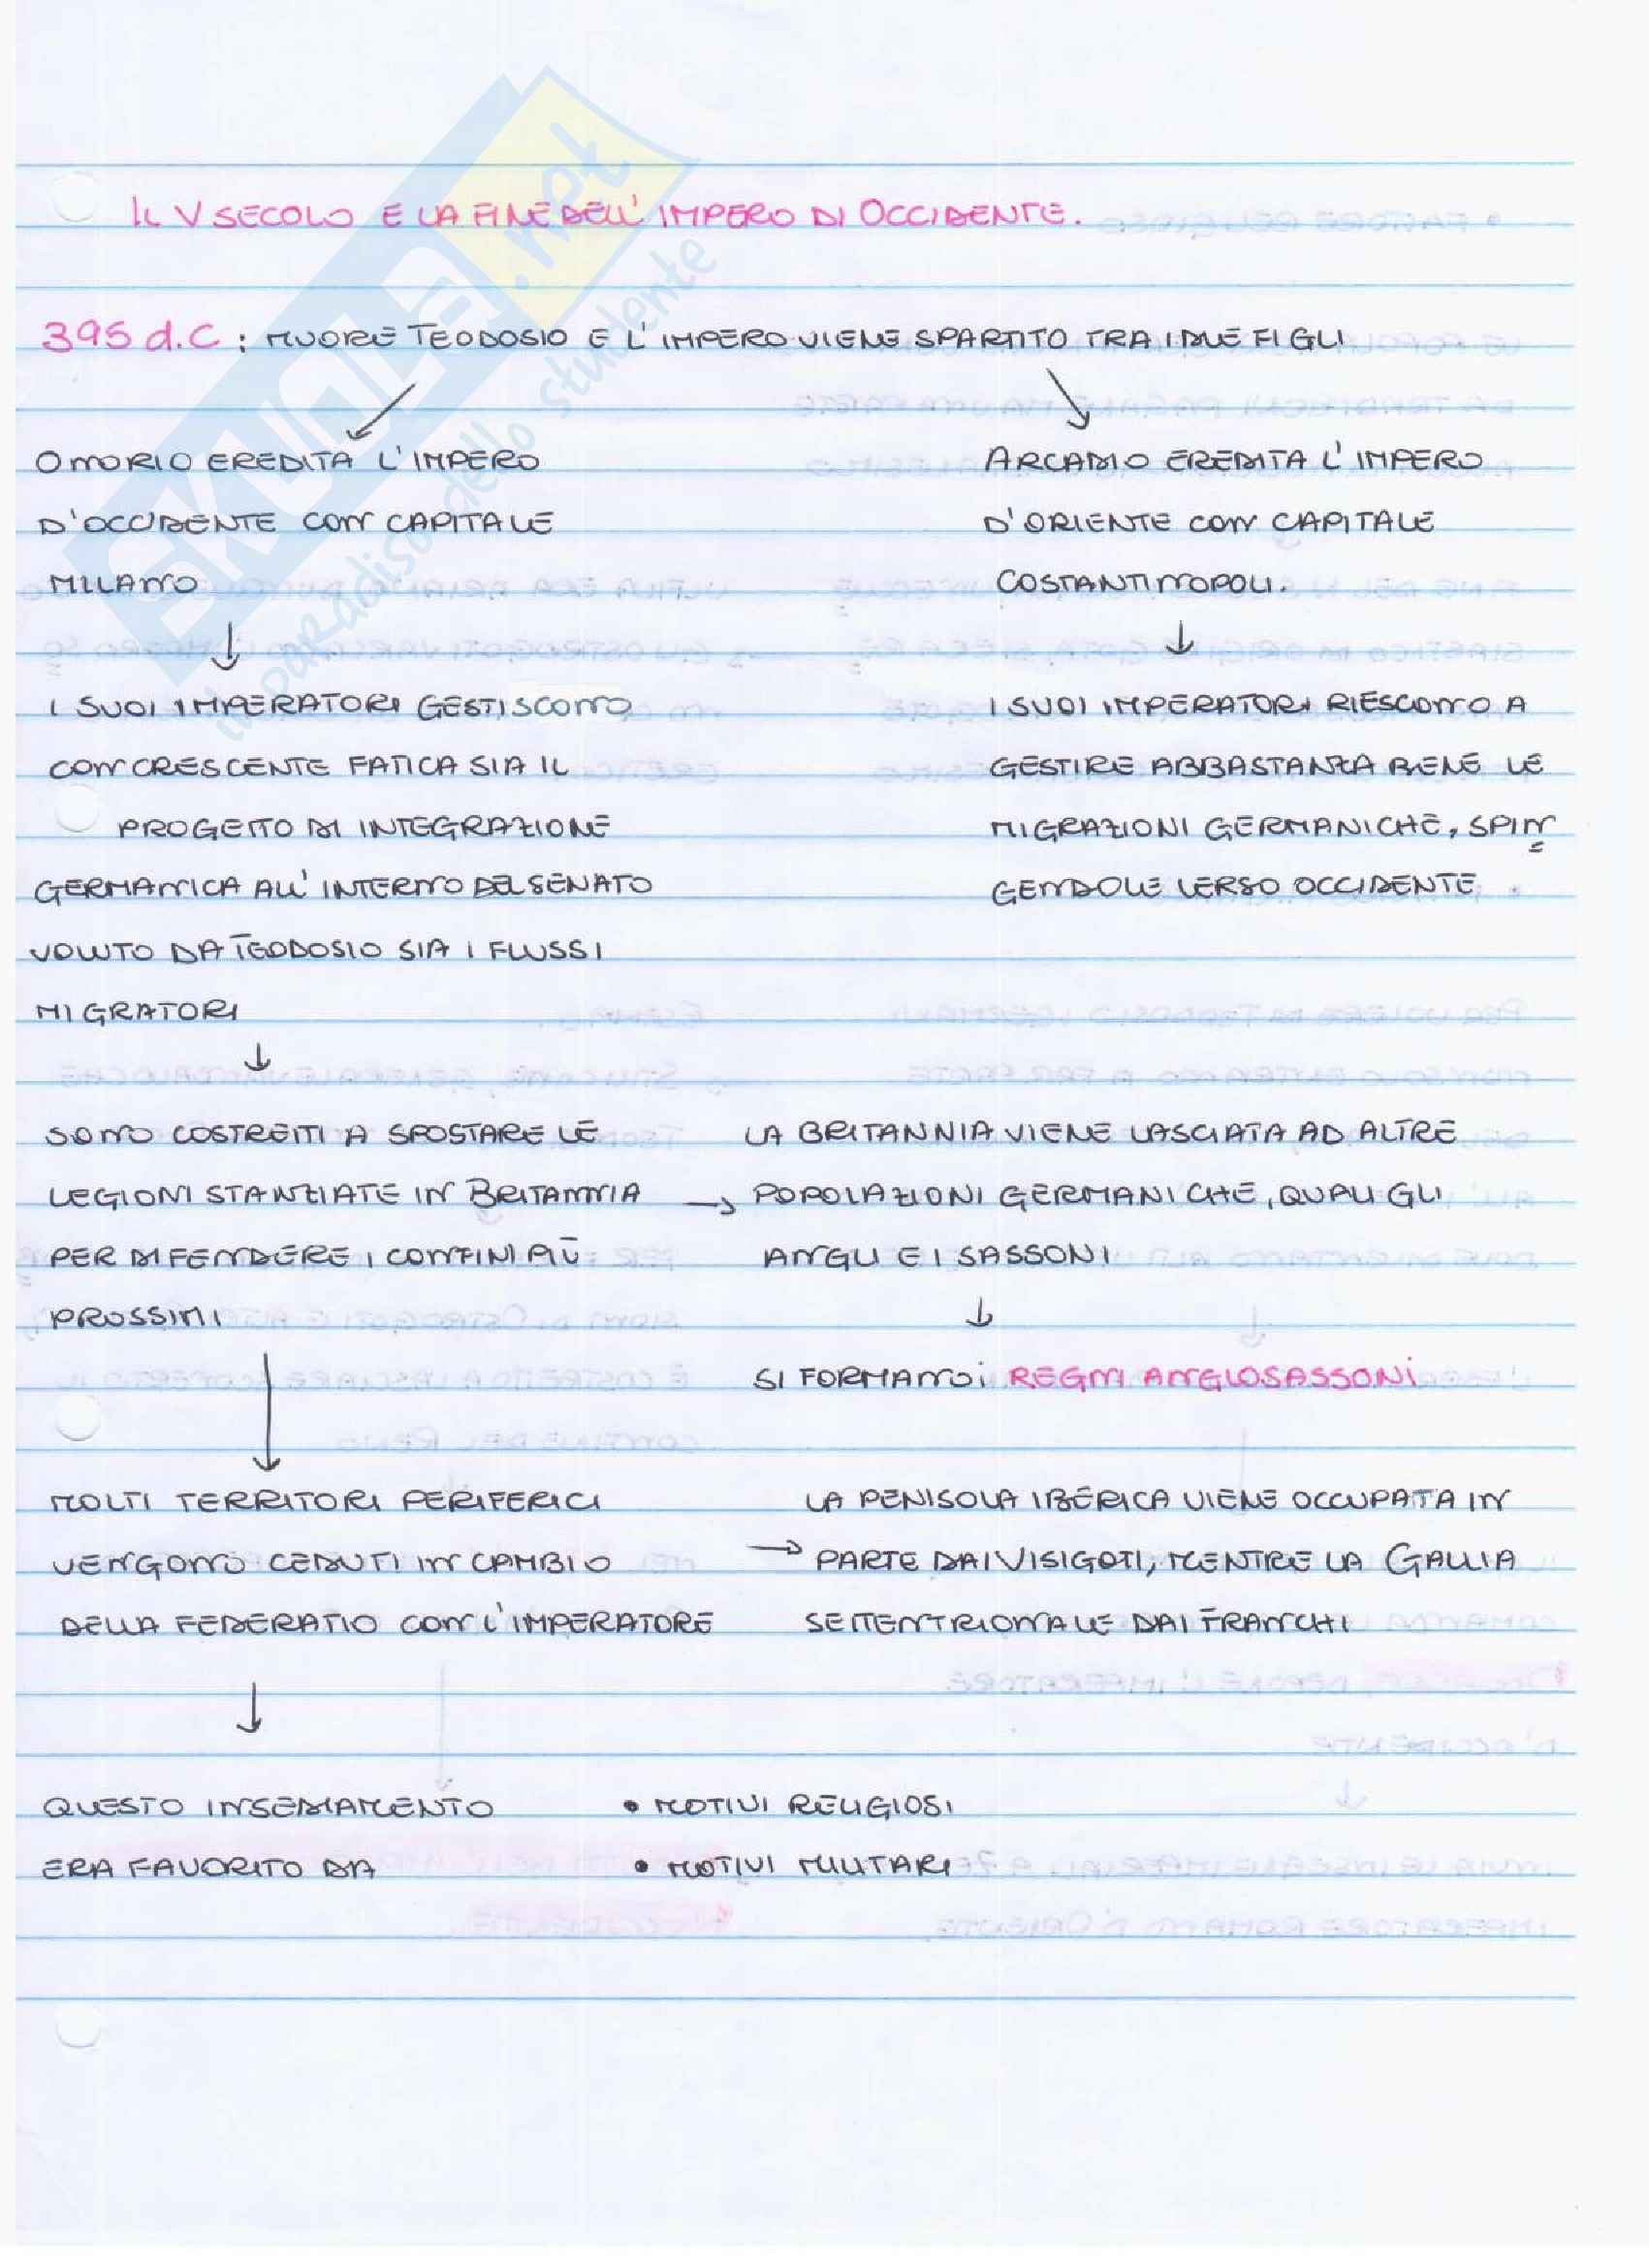 IL V SECOLO E LA FINE DELL'IMPERO DI OCCIDENTE.
395 d.C : MUORE TEODOSIO E L'IMPERO VIENE SPARTITO TRA I DUE FIGLI
ONORIO EREDITA L'IMPERO
D'OCCIDENTE CON CAPITALE
MILANO
ARCADIO EREDITA L'IMPERO
D'ORIENTE CON CAPITALE
COSTANTINOPOLI.
I SUOI IMPERATORI GESTISCONO
CON CRESCENTE FATICA SIA IL
PROGETTO DI INTEGRAZIONE
GERMANICA ALL'INTERNO DEL SENATO
VOLUTO DA TEODOSIO SIA I FLUSSI
MIGRATORI
I SUOI IMPERATORI RIESCONO A
GESTIRE ABBASTANZA BENE LE
MIGRAZIONI GERMANICHE, SPIN
GENDOLE VERSO OCCIDENTE
SONO COSTRETTI A SPOSTARE LE
LEGIONI STANZIATE IN BRITANNIA
PER DIFENDERE I CONFINI PIÙ
PROSSIMI
→ LA BRITANNIA VIENE LASCIATA AD ALTRE
POPOLAZIONI GERMANICHE, QUALI GLI
ANGLI E I SASSONI
SI FORMANO i REGNI ANGLOSASSONI
MOLTI TERRITORI PERIFERICI
VENGONO CEDUTI IN CAMBIO
DELLA FEDERATIO CON L'IMPERATORE
→ LA PENISOLA IBERICA VIENE OCCUPATA IN
PARTE DAI VISIGOTI, MENTRE LA GALLIA
SETTENTRIONALE DAI FRANCHI
QUESTO INSEDIAMENTO
ERA FAVORITO DA
• MOTIVI RELIGIOSI
• MOTIVI MILITARI
SKUOLA.net
il paradiso dello studente